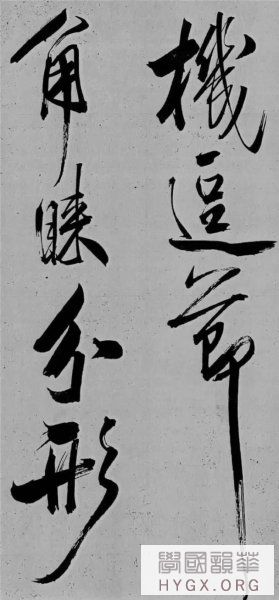 機逗節
角睞分形
華韻國學
HYGX.ORG